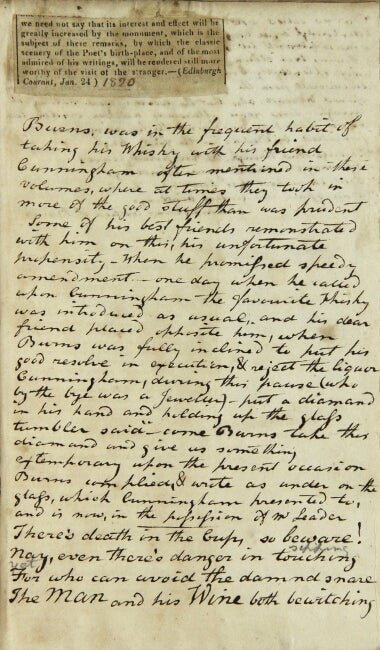 we need not say that its interest and effect will be
greatly increased by the monument, which is the
subject of these remarks, by which the classic
scenery of the Poet's birth-place, and of the most
admired of his writings, will be rendered still more
worthy of the visit of the stranger.—(Edinburgh
Courant, Jan. 24) 1820
Burns, was in the frequent habit of
taking his Whisky with his friend
Cunningham often mentioned in these
volumes, where at times they took in
more of the good stuff than was prudent
Some of his best friends remonstrated
with him on this, his unfortunate
propensity — When he promissed speedy
amendment — one day when he called
upon Cunningham — the favourite Whisky
was introduced as usual, and his dear
friend placed opposite him, when
Burns was fully inclined to put his
good resolve in execution, & reject the liquor
Cunningham, during this pause (who
by the bye was a Jeweller) — put a diamand
in his hand and holding up the glass
tumbler said — come Burns take this
diamand and give us something
extemporary upon the present occasion
Burns complied, & wrote as under on the
glass, which Cunningham presented to,
and is now, in the possession of Mr Leader
There's death in the Cup, so beware!
Nay, even there's danger in touching
For who can avoid the damnd snare
The Man and his Wine both bewitching